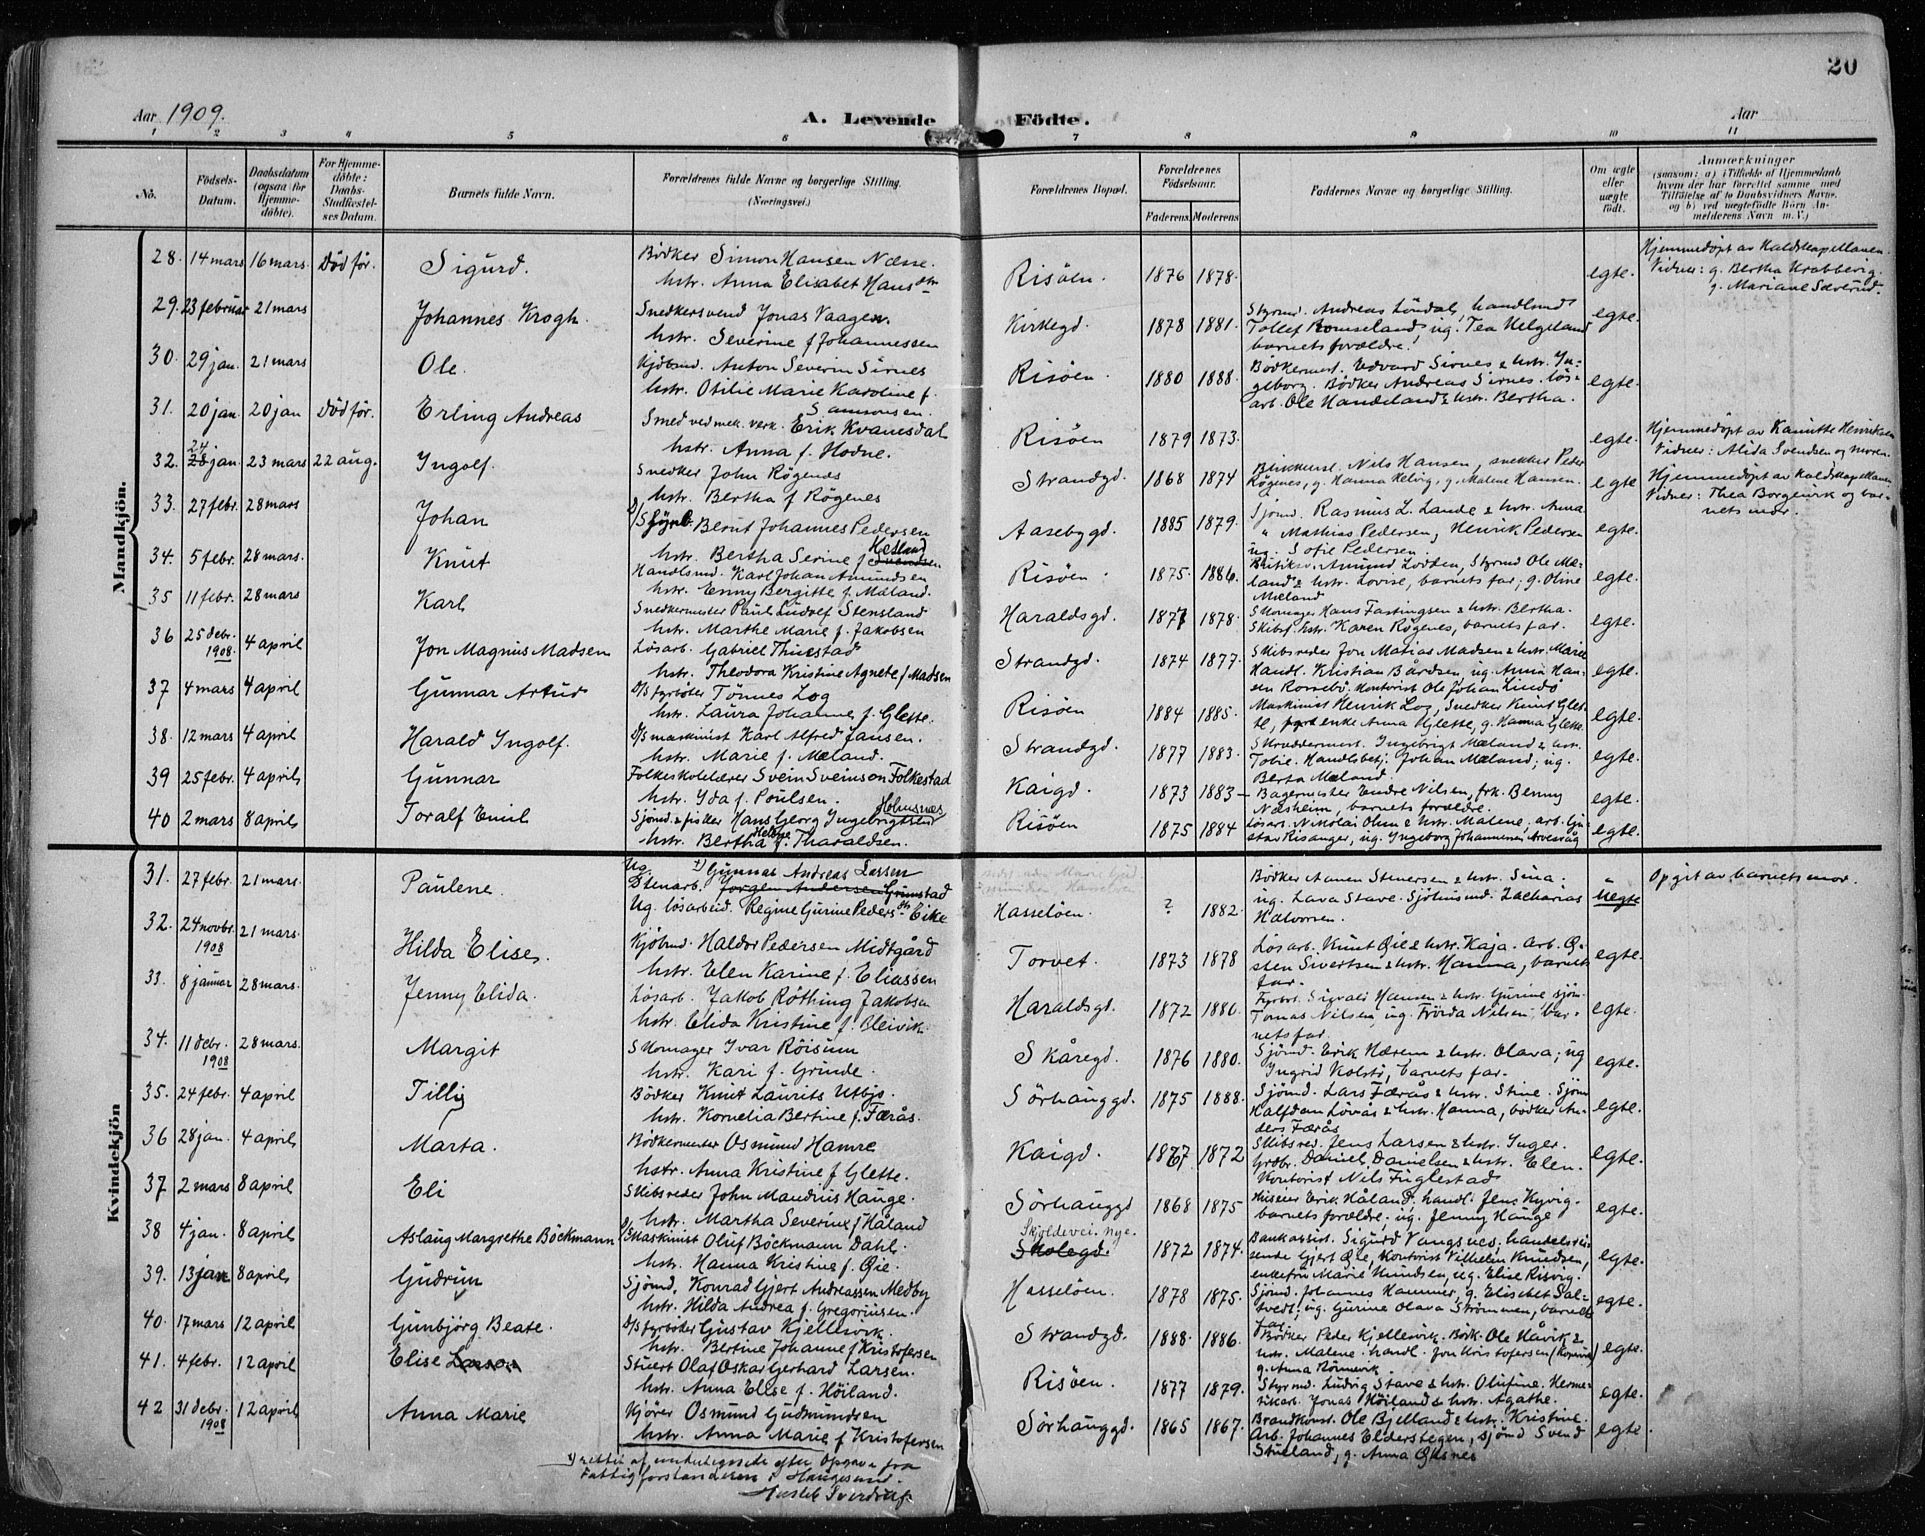 20
Aar 1909. A. Levende Födte. Aar
1 2 3 4 5 6 7 8 9 10 11
No. Födsels-Datum. Daabsdatum (ogsaa for Hjemme-döbte). For Hjemme-döbte: Daabs-Stadfæstel-ses Datum. Barnets fulde Navn. Forældrenes fulde Navne og borgerlige Stilling. (Næringsvei.) Forældrenes Bopæl. Forældrenes Födselsaar. Faderens Moderens Faddernes Navne og borgerlige Stilling. Om ægte eller uægte født. Anmærkninger (saasom: a) i Tilfælde af Hjemmedaab hvem der har forrettet samme med Tilföielse af to Daabsvidners Navne, og b) ved uægtefödte Börn An-melderens Navn m. V.)
Mandkjön.
28. 14 mars 16 mars. Död før. Sigurd. Bödker Simon Hansen Næsse.
hstr. Anna Elisabet Hansdtr Risöen. 1876 1878. egte. Hjemmedöpt av Kaldskapellanen.
Vidner: g. Bertha Krabbevig.
g. Mariane Sæverud.
29. 23 februar 21 mars Johannes Krogh. Snedkersvend Jonas Vaagen.
hstr. Severine f Johannessen Kirkegd. 1878 1881. Styrmd. Andreas Löndal, handlsmd
Tollef Romseland, ug. Tea Helgeland
barnets forældre. egte.
30. 29 jan. 21 mars Ole. Kjöbmd. Anton Severin Sirnes
hstr. Otilie Marie Karoline f.
Samsonsen. Risöen. 1880 1888. Bödkermest. Edvard Sirnes & hstr. In-
geborg. Bödker Andreas Sirnes. lös-
arb. Ole Handeland & hstr. Bertha. egte.
31. 20 jan. 20 jan Död før. Erling Andreas Smed ved mek. verk. Erik Kvanesdal
hstr. Anna f. Hodne. Risöen 1879 1873. egte. Hjemmedöpt av Kamitte Henriksen
Vidner: Alida Svendsen og moren.
32. 24 28 jan. 23 mars 22 aug. Ingolf. Snedker John Rögenes
hstr. Bertha f Rögenes Strandgd. 1868 1874 Nils Hansen, snekker Peder
Rögenes, g. Hanna Helvig, g. Malene Hansen. egte Hjemmedöpt av Kaldskapellanen
Vidner: Thea Borgenvik og bar-
nets mor.
33. 27 febr. 28 mars Johan Berut Johannes Pedersen
hstr. Bertha Serine f. Svendsen Aasebygd. 1885 1879. Sjömd. Rasmus L. Lande & hstr. Anna
" Mathias Pedersen, Henrik Pedersen
ug. Sofie Pedersen. egte.
34. 5 febr. 28 mars. Knut Handlsmd. Karl Johan Amundsen
hstr. Enny Bergitte f. Mæland. Risöen. 1875. 1886. Amund Lodden, Styrmd Ole Mæ-
land & hstr. Lovise, barnets far; g. Oline
Mæland egte.
35 11 febr. 28 mars Karl Snedkermester Paul Ludolf Stensland
hstr. Marthe Marie f. Jakobsen Haraldsgd. 1877 1878. Skomager Hans Fastingsen & hstr. Bertha.
Skibsf. hstr. Karen Rögenes, barnets far. egte.
36 25 debr. 1908. 4 april Jon Magnus Madsen Lösarb. Gabriel Thuestad
hstr. Theodora Kristine Agnete f Madsen Strandgd. 1874 1877. Skibsreder Jon Matias Madsen & hstr. Marie
Handl. Kristian Bårdsen, ug. Anna Han-
sen Rossebö. Kontorist Ole Johan Lindö egte.
37 4 mars 4 april Gunnar Artur D/S fyrböter Tönnes Log
hstr. Laura Johanne f. Glette. Risöen 1884 1885. Maskinist Henrik Log, Snedker Knut Glet-
te, enke Anna Glette, g. Hanna Glette egte.
38. 12 mars 4 april Harald Ingolf. D/S maskinist Karl Alfred Jansen.
hstr. Marie f. Mæland. Strandgd. 1877 1883. Skræddermest. Ingebrigt Mæland & hstr.
Tobie. Handlsbetj. Johan Mæland; ug.
Berta Mæland. egte.
39 25 febr. 4 april Gunnar Folkeskolelærer Svein Sveinson Folkestad
hstr. Ida f. Poulsen. Kaigd. 1873 1883 Bagermester Endre Nilsen, frk. Benny
Næsheim, barnets forældre. egte.
40 2 mars 8 april Toralf Emil Holmsnæs
Sjömd. & fisker Hans Georg Ingebrigtsen
hstr. Bertha Helene f. Tharaldsen. Risöen 1875 1884 Lösarb. Nikolai Olsen & hstr. Malene. arb. Gu-
stav Risanger, ug. Ingeborg Johannesen Arvesvåg egte.
Kvindekjön
31. 27 febr. 21 mars. Paulene. Ug. 1) Gunnar Andreas Lassen
Stenarb. Jørgen Andersen Grimstad
Ug. lösarbeid. Regine Gurine Pedersdtr Eike Hasselöen. ? 1882. Bödker Stenersen & hstr. Sina.
ug. Lava Stave. Sjömd. Zacharias
Halvorsen. Uegte Opgit av barnets mor.
32. 24 novbr. 1908 21 mars. Hilda Elise. Kjöbmd. Haldor Pedersen Midtgård
hstr. Elen Karine f. Eliassen Torvet. 1873 1878 Lösarb. Knut Øie & hstr. Kaja. Arb. Ø-
sten Sivertsen & hstr. Hanna, barnets
far. egte.
33. 8 januar 28 mars. Jenny Elida. Lösarb. Jakob Röthing Jakobsen
hstr. Elida Kristine f. Oleivik. Haraldsgd. 1872 1886. Fyrbt. Sigvald Hansen & hstr. Gurine sjöm.
Tomas Nilsen, ug. Frörda Nilsen, bar-
nets far. egte.
34. 11 debr. 1908 28 mars. Margit Skomager Ivar Röisum
hstr. Kari f. Grinde. Skåregd. 1876 1880. Sjömd. Erik Hærem & hstr. Olava; ug
Ingrid Kolstø, barnets far. egte.
35. 24 febr. 4 april Tilly Bödker Knut Laurits Utbjo.
hstr. Kornelia Bertine f. Færås. Sörhauggd. 1875 1888. Sjömd. Lars Færås & hstr. Stine. Sjöm
Halfdan Lövås & hstr. Hanna, bödker An-
ders Færås egte.
36 28 jan. 4 april Marta. Bödkermester Osmund Hamre
hstr. Anna Kristine f Glette. Kaigd. 1867 1872 Skibsred. Jens Larsen & hstr. Inger.
Grdbr. Daniel Danielsen & hstr. Elen.
Kontorist Nils Fuglestad egte.
37 2 mars 8 april Eli Skibsreder John Maudius Hauge.
hstr. Martha Severine f. Håland Sörhauggd 1868 1875 Huseier Erik Håland. handl. Jens Kyvig.
barnets forældre. ug. Jenny Hauge egte.
38 4 jan. 8 april Aslaug Margrethe Böckmann D/S Maskinist Oluf Böckmann Dahl.
hstr. Hanna Kristine f. Øie. Skjoldevei. nye.
Skolegd. 1872 1874. Bankassist. Sigurd Vangsnes. handelsrei-
sende Gjert Øie, Kontorist Vilhelm Knudsen,
enkefru Marie Knudsen, ug. Elise Risvig. egte.
39. 13 jan 8 april Gudrun Sjömd. Konrad Gjert Andreassen Medby
hstr. Hilda Andrea f. Gregoriusen. Hasselöen. 1878 1875. Sjömd. Johannes Hammer, g. Elisabet Sal-
tvedt, ug. Gurine Olava Strömmen, barnets
far. egte.
40. 17 mars 12 april Gunbjörg Beate. D/S fyrböter Gustav Kjellesvik.
hstr. Bertine Johanne f Kristofersen Strandgd. 1888. 1886. Bödker Peder Kjellesvik. Bödk. Ole Håvik &
hstr. Malene. handl. Jon Kristofersen
g. Anna Rönnevik. egte.
41. 4 febr. 12 april Elise Larsen Stuert Olaf Oskar Gerhard Larsen.
hstr. Anna Elise f. Höiland. Risöen. 1877 1879. Styrmd. Ludvig Stave & hstr. Olufine. Herme-
tikarb. Jonas Höiland & hstr. Agathe. egte.
42 31 debr. 1908 12 april Anna Marie Kjörer Osmund Gudmundsen
hstr. Anna Marie f Kristofersen Sörhauggd. 1865 1867. Brandkonst. Ole Bjelland & hstr. Kristine.
Arb. Johannes Elderstegen, sjömd Svend
Stueland, g. Anna Øksnes egte.
1) rettet af undertegnede efter Opgave fra
Fattigforstanderen i Haugesund.